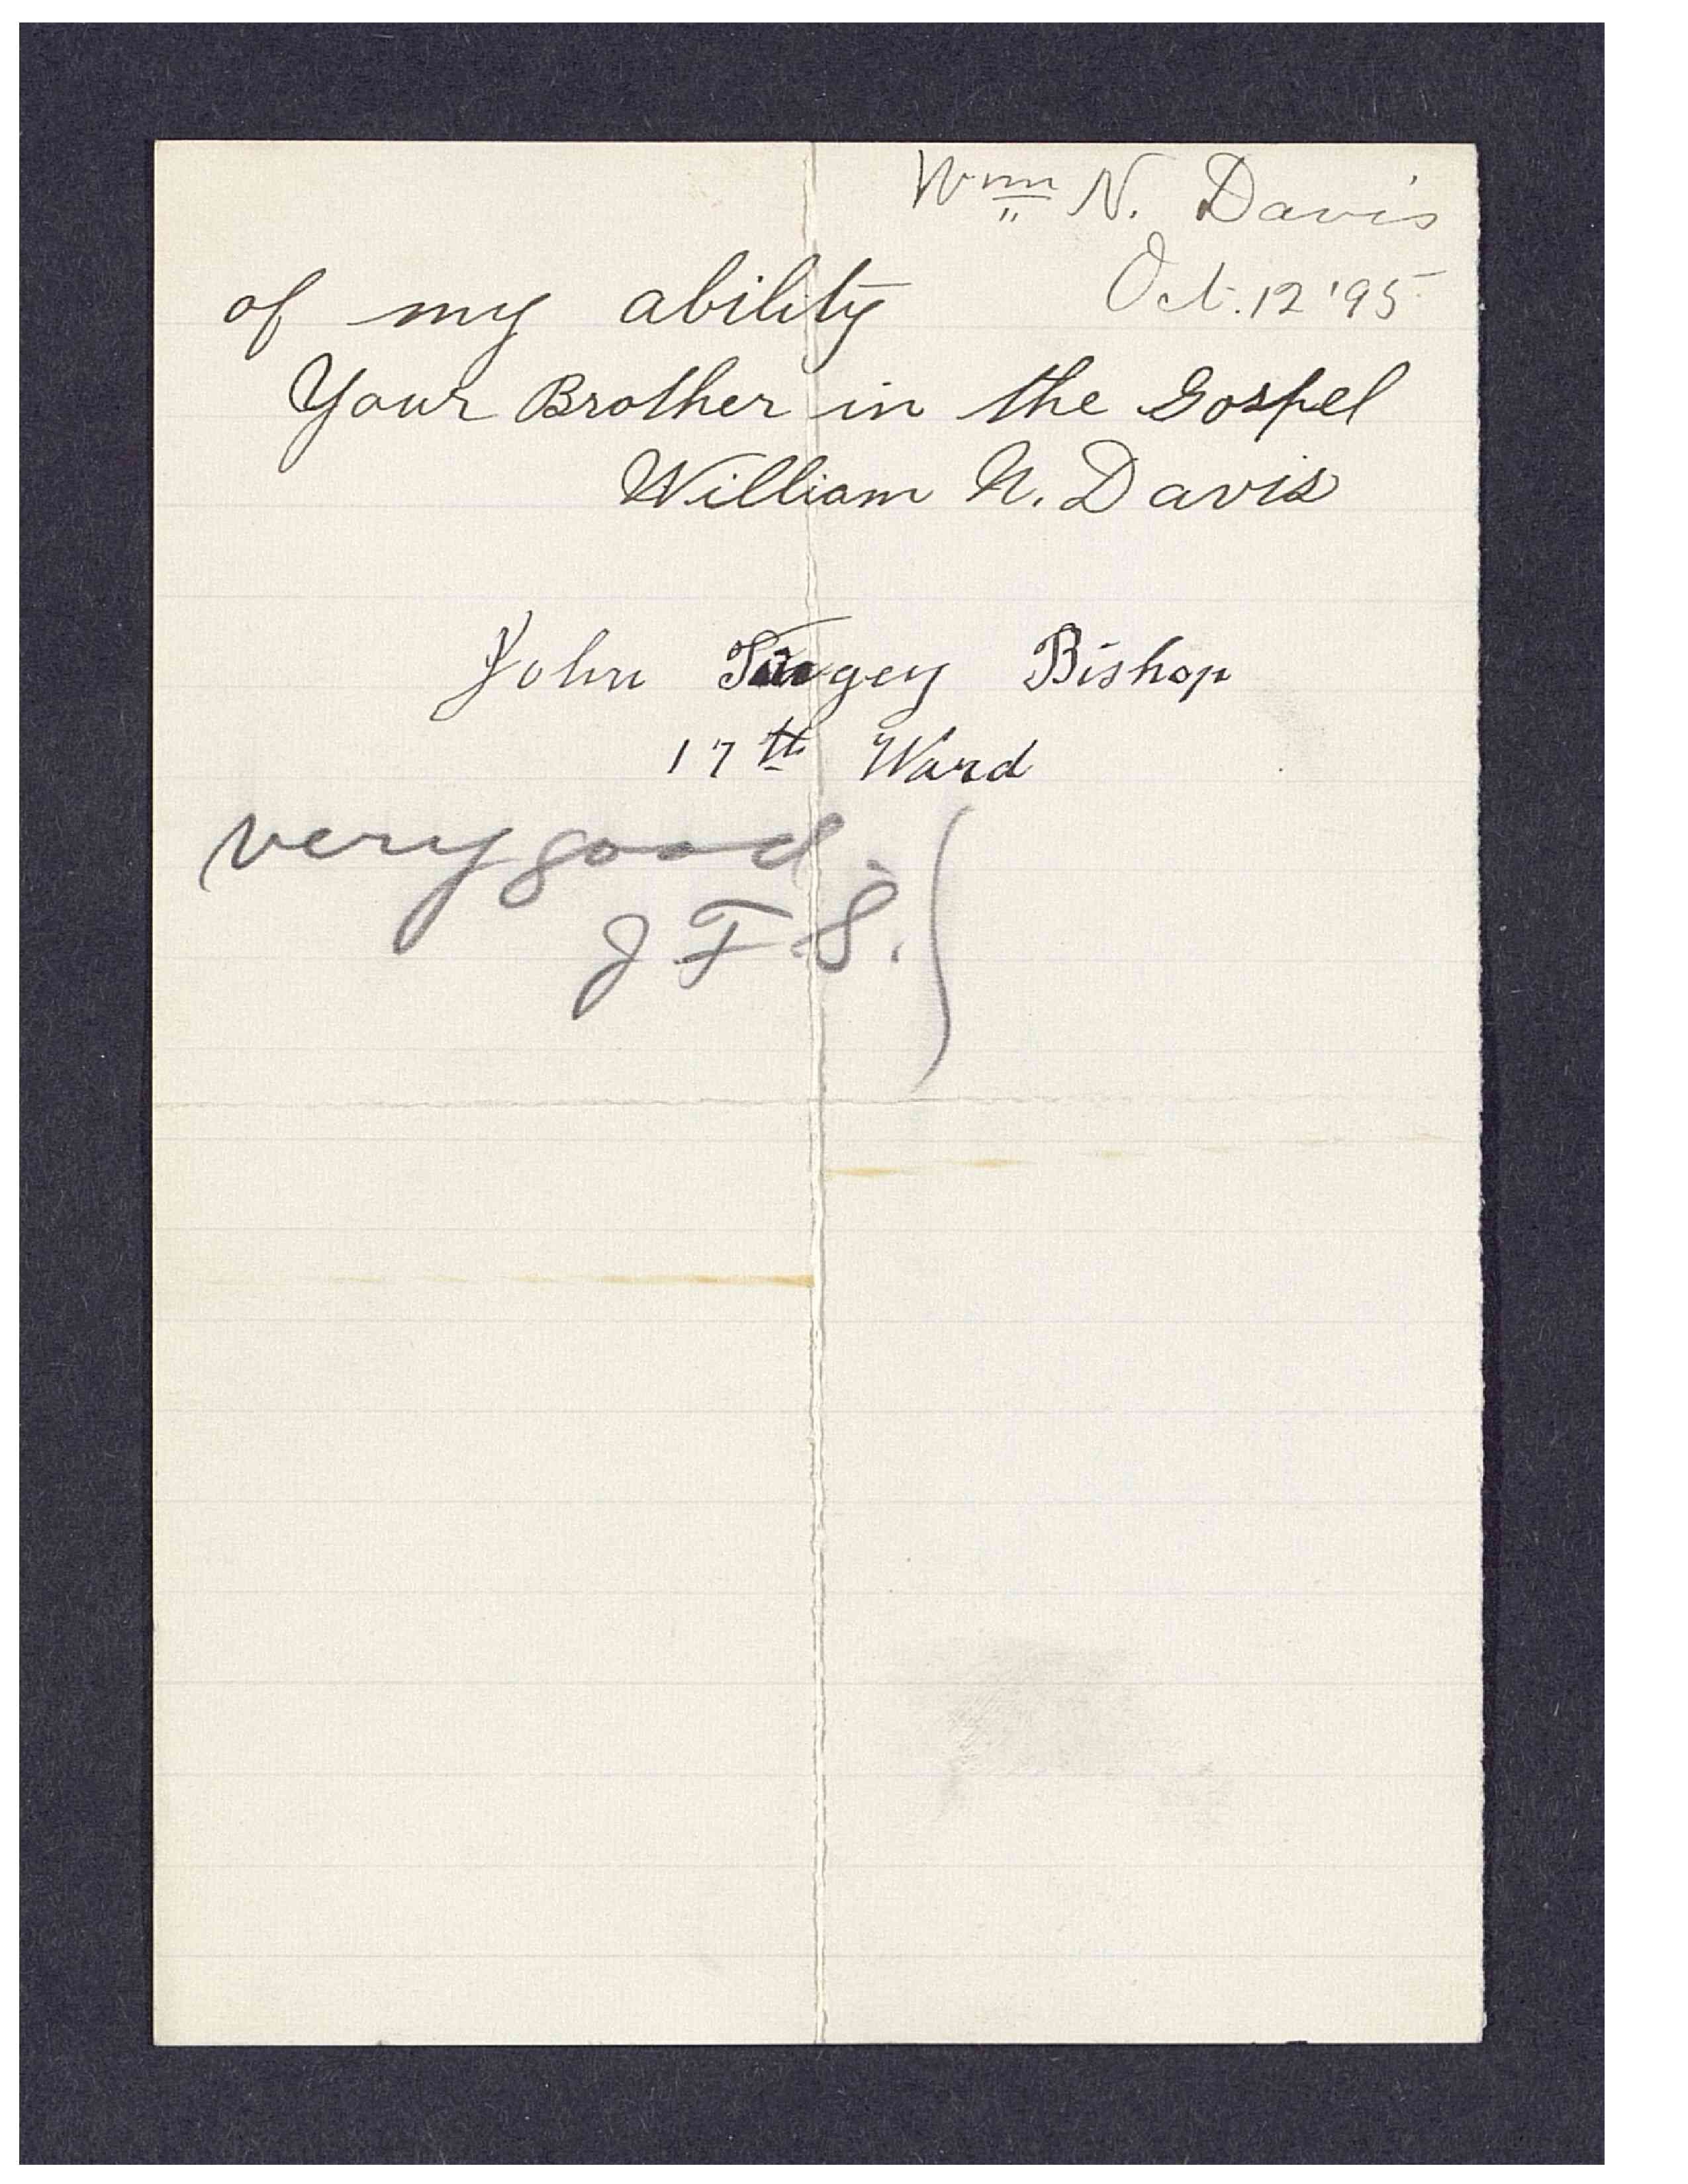 Wm N. Davis
Oct. 12 '95
of my ability
Your Brother in the Gospel
William N. Davis
John Bishop
17th Ward
very good.
J F. S.